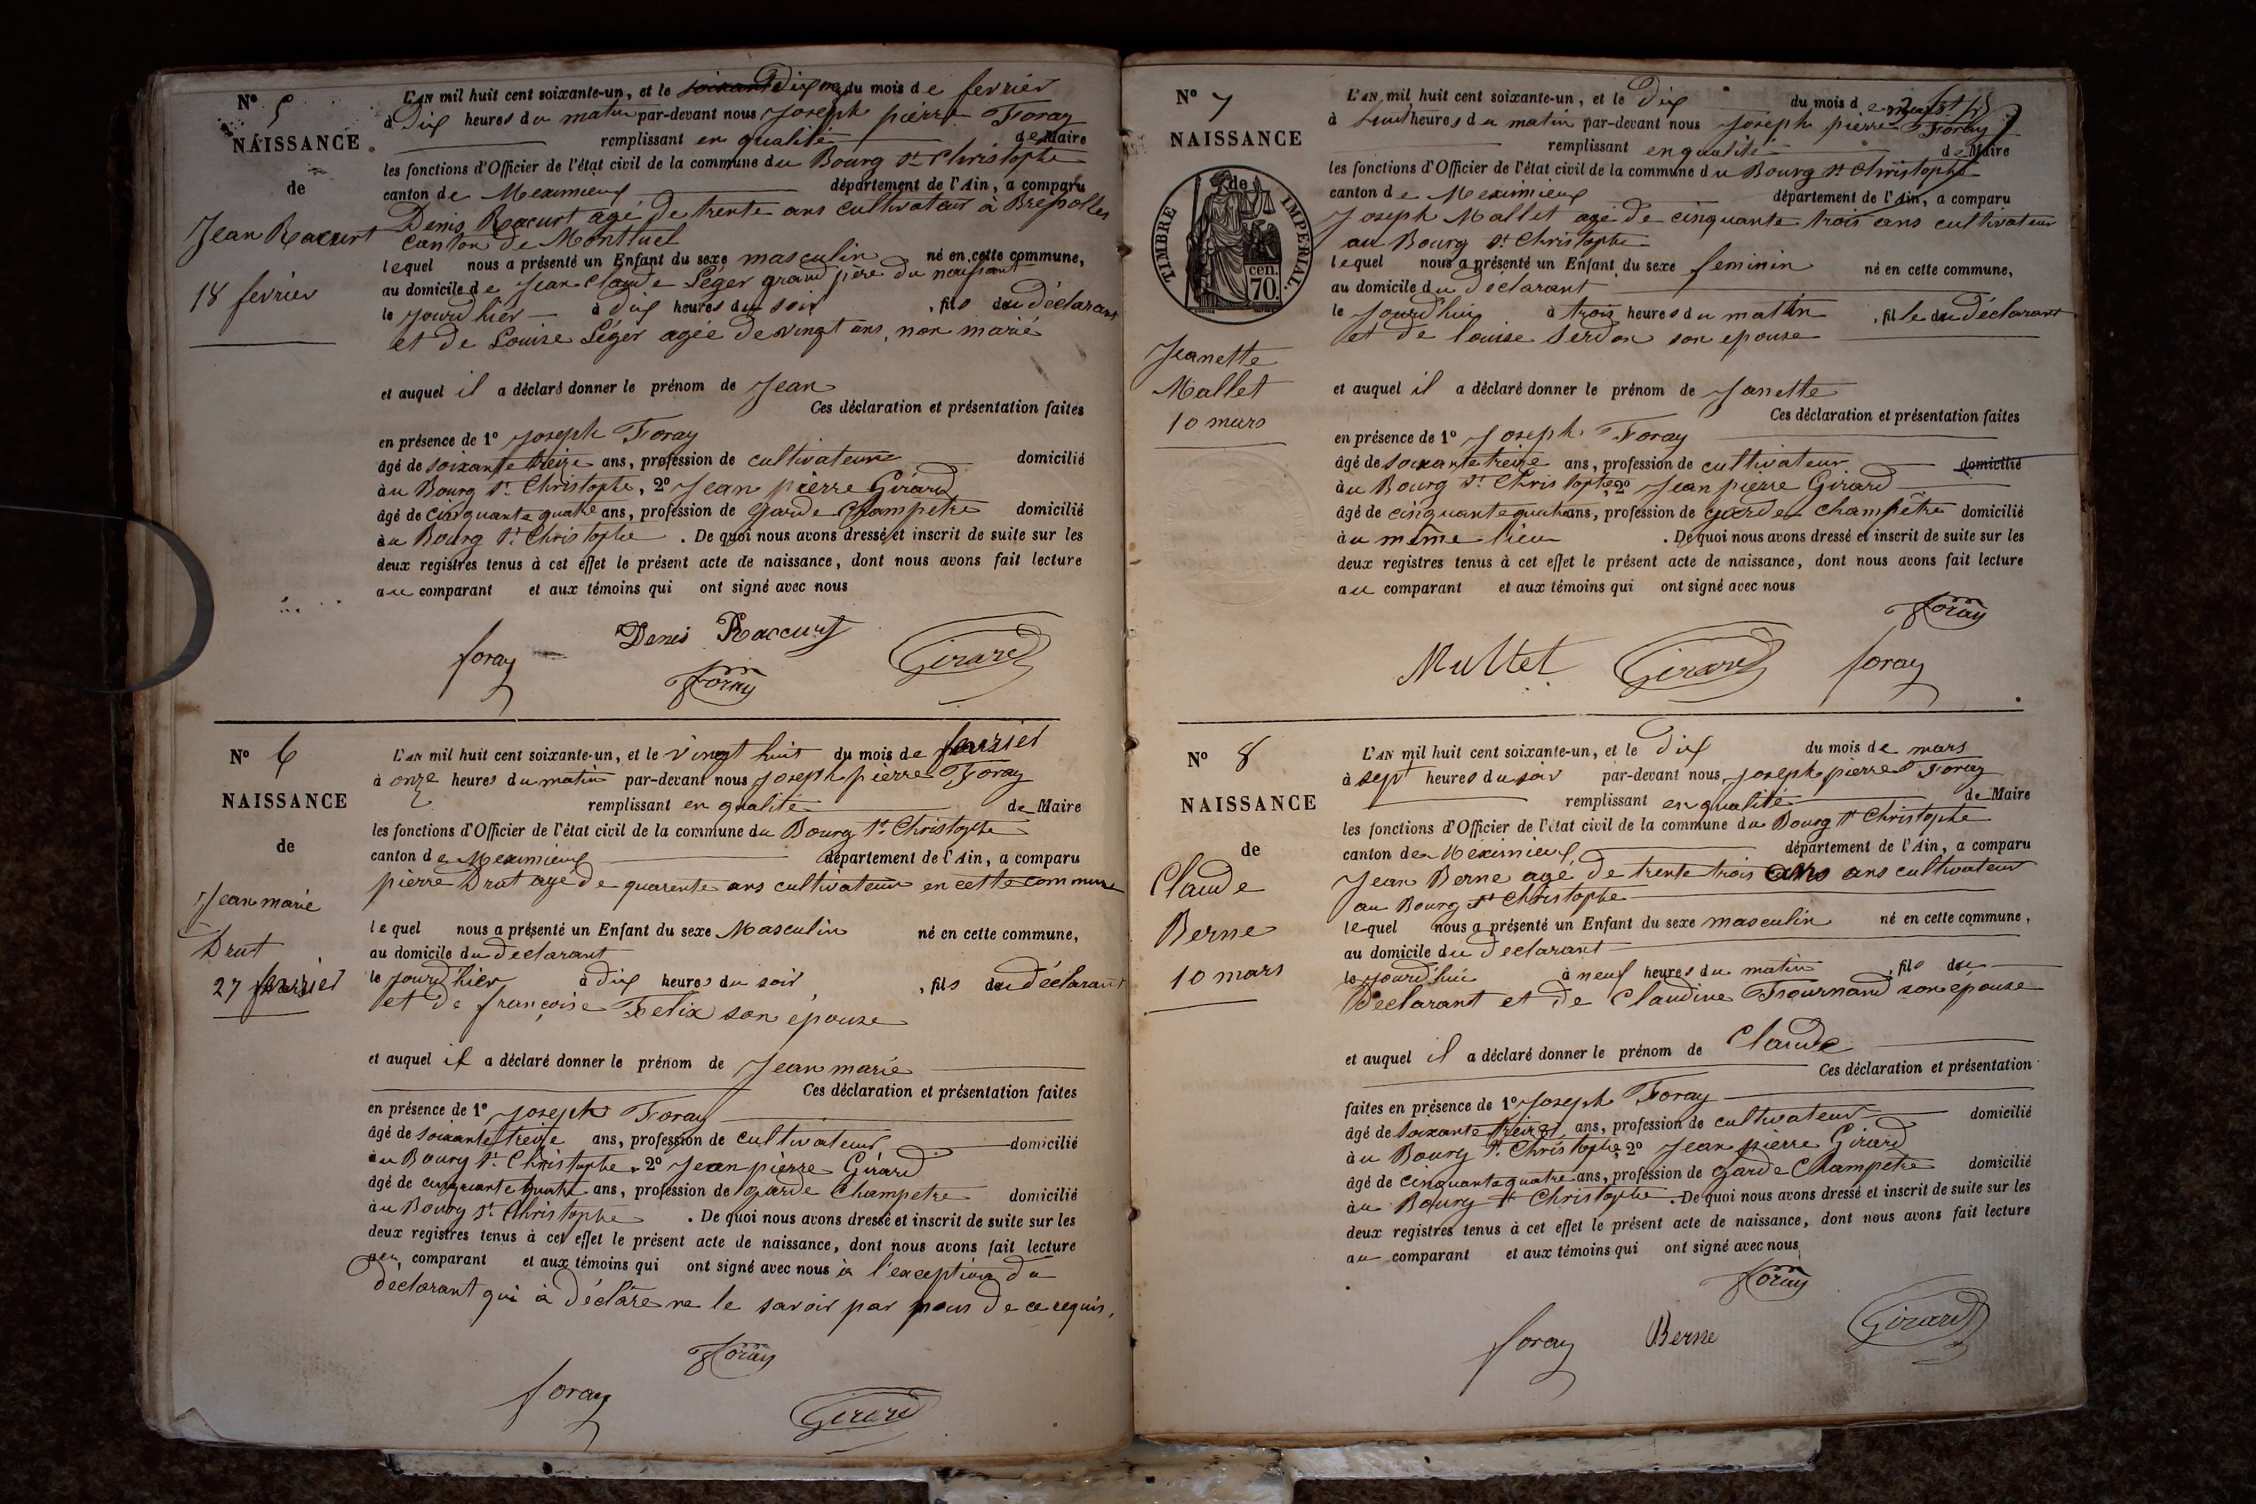 N° 5
NAISSANCE
de
Jean Racurt
18 fevrier
L'AN mil huit cent soixante-un, et le du mois de fevrier
à Dix heures du matin par-devant nous Joseph pierre Foray
remplissant en qualité de Maire
les fonctions d'Officier de l'état civil de la commune du Bourg St Christophe
canton de Meximieux département de l'Ain, a comparu
Denis Racurt agé de trente ans cultivateur à Brepolles
canton de Montluel
lequel nous a présenté un Enfant du sexe masculin né en cette commune,
au domicile de Jean Claude Léger grand pere du naissant
le jourd'hier à dix heures du soir, fils du déclarant
et de Louise Léger agée de vingt ans, non marié
et auquel il a déclaré donner le prénom de Jean
Ces déclaration et présentation faites
en présence de 1° Joseph Foray
âgé de soixante treize ans, profession de cultivateur domicilié
àu Bourg St Christophe, 2° Jean pierre Girard
âgé de cinquante quatre ans, profession de garde Champetre domicilié
àu Bourg St Christophe. De quoi nous avons dressé et inscrit de suite sur les
deux registres tenus à cet effet le présent acte de naissance, dont nous avons fait lecture
au comparant et aux témoins qui ont signé avec nous
foray Denis Raccurt Girard
Foray
N° 6
NAISSANCE
de
Jean marie
Drut
27 fevrier
L'AN mil huit cent soixante-un, et le vingt huit du mois de fevrier
à onze heures du matin par-devant nous Joseph pierre Foray
remplissant en qualité de Maire
les fonctions d'Officier de l'état civil de la commune du Bourg St Christophe
canton de Meximieux département de l'Ain, a comparu
pierre Drut agé de quarente ans cultivateur en cette commune
lequel nous a présenté un Enfant du sexe Masculin né en cette commune,
au domicile du declarant
le jourd'hier à dix heures du soir, fils du déclarant
et de françoise Felix son épouse
et auquel il a déclaré donner le prénom de Jean marie
Ces déclaration et présentation faites
en présence de 1° Joseph Foray
âgé de soixante treize ans, profession de cultivateur domicilié
àu Bourg St Christophe 2° Jean pierre Girard
âgé de cinquante quatre ans, profession de garde Champetre domicilié
àu Bourg St Christophe. De quoi nous avons dressé et inscrit de suite sur les
deux registres tenus à cet effet le présent acte de naissance, dont nous avons fait lecture
au comparant et aux témoins qui ont signé avec nous à l'exception du
declarant qui à déclaré ne le savoir par nous de ce requis,
Foray
foray Girard
N° 7
NAISSANCE
de
TIMBRE IMPERIAL.
70 cen.
Jeanette
Mallet
10 mars
L'AN mil huit cent soixante-un, et le dix du mois de mars
à huit heures du matin par-devant nous Joseph pierre Foray
remplissant en qualité de Maire
les fonctions d'Officier de l'état civil de la commune du Bourg St Christophe
canton de Meximieux département de l'Ain, a comparu
Joseph Mallet agé de cinquante trois ans cultivateur
au Bourg St Christophe
lequel nous a présenté un Enfant du sexe feminin né en cette commune,
au domicile du declarant
le jourd'hui à trois heures du matin, fille du déclarant
et de louise Serdon son epouse
et auquel il a déclaré donner le prénom de Janette
Ces déclaration et présentation faites
en présence de 1° Joseph Foray
âgé de soixante treize ans, profession de cultivateur domicilié
àu Bourg St Christophe, 2° Jean pierre Girard
âgé de cinquante quatre ans, profession de garde champêtre domicilié
àu même lieu. De quoi nous avons dressé et inscrit de suite sur les
deux registres tenus à cet effet le présent acte de naissance, dont nous avons fait lecture
au comparant et aux témoins qui ont signé avec nous
Foray
Mallet Girard foray
N° 8
NAISSANCE
de
Claude
Berne
10 mars
L'AN mil huit cent soixante-un, et le dix du mois de mars
à sept heures du soir par-devant nous Joseph pierre Foray
remplissant en qualité de Maire
les fonctions d'Officier de l'état civil de la commune du Bourg St Christophe
canton de Meximieux département de l'Ain, a comparu
Jean Berne agé de trente trois ans ans cultivateur
au Bourg St Christophe
lequel nous a présenté un Enfant du sexe masculin né en cette commune,
au domicile du declarant
le jourd'hui à neuf heures du matin, fils du
Declarant et de Claudine son epouse
et auquel il a déclaré donner le prénom de Claude
Ces déclaration et présentation
faites en présence de 1° Joseph Foray
âgé de soixante treize ans, profession de cultivateur domicilié
àu Bourg St Christophe, 2° Jean pierre Girard
âgé de cinquante quatre ans, profession de garde Champetre domicilié
àu Bourg St Christophe. De quoi nous avons dressé et inscrit de suite sur les
deux registres tenus à cet effet le présent acte de naissance, dont nous avons fait lecture
au comparant et aux témoins qui ont signé avec nous
Foray
foray Berne Girard